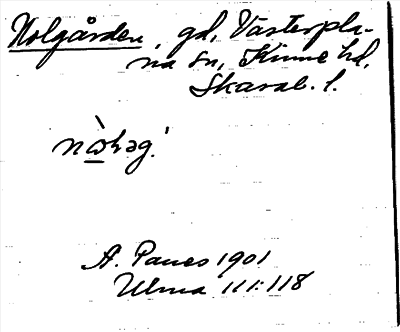 Holgården, gd, Västerpla-
na sn, Kinne hd,
Skarab. l.
A. Panes 1901
Ulma 111:118